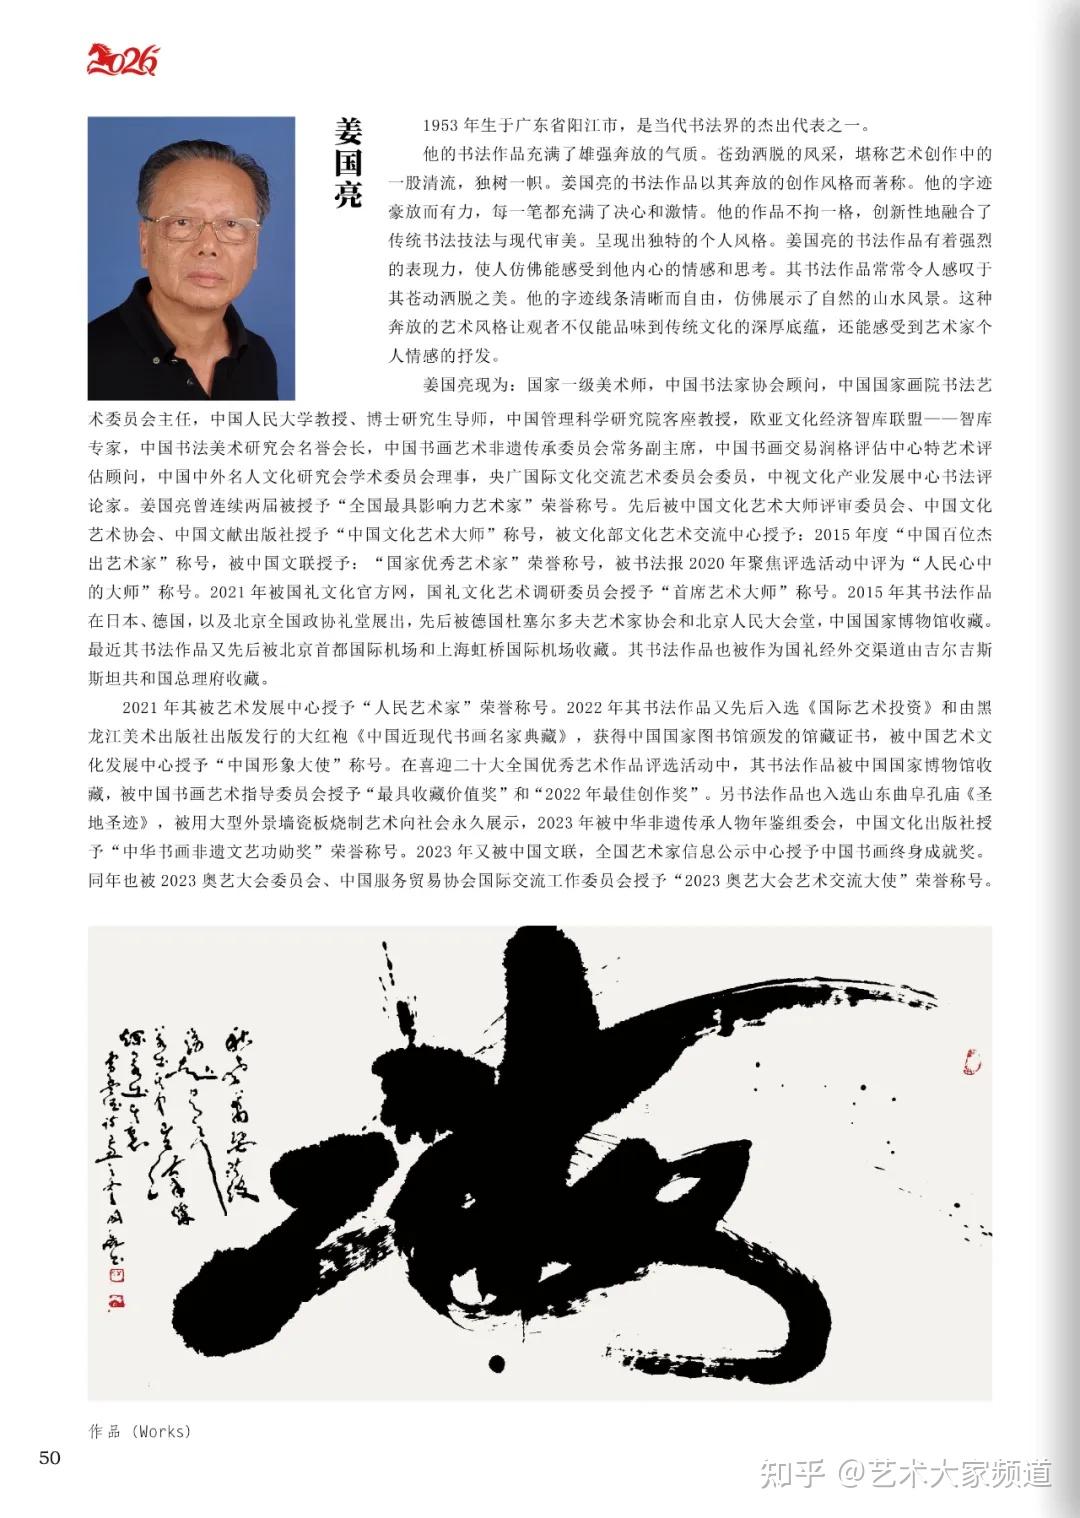 2026
姜国亮
1953 年生于广东省阳江市，是当代书法界的杰出代表之一。
他的书法作品充满了雄强奔放的气质。苍劲洒脱的风采，堪称艺术创作中的
一股清流，独树一帜。姜国亮的书法作品以其奔放的创作风格而著称。他的字迹
豪放而有力，每一笔都充满了决心和激情。他的作品不拘一格，创新性地融合了
传统书法技法与现代审美。呈现出独特的个人风格。姜国亮的书法作品有着强烈
的表现力，使人仿佛能感受到他内心的情感和思考。其书法作品常常令人感叹于
其苍动洒脱之美。他的字迹线条清晰而自由，仿佛展示了自然的山水风景。这种
奔放的艺术风格让观者不仅能品味到传统文化的深厚底蕴，还能感受到艺术家个
人情感的抒发。
姜国亮现为：国家一级美术师，中国书法家协会顾问，中国国家画院书法艺
术委员会主任，中国人民大学教授、博士研究生导师，中国管理科学研究院客座教授，欧亚文化经济智库联盟——智库
专家，中国书法美术研究会名誉会长，中国书画艺术非遗传承委员会常务副主席，中国书画交易润格评估中心特艺术评
估顾问，中国中外名人文化研究会学术委员会理事，央广国际文化交流艺术委员会委员，中视文化产业发展中心书法评
论家。姜国亮曾连续两届被授予“全国最具影响力艺术家”荣誉称号。先后被中国文化艺术大师评审委员会、中国文化
艺术协会、中国文献出版社授予“中国文化艺术大师”称号，被文化部文化艺术交流中心授予：2015 年度“中国百位杰
出艺术家”称号，被中国文联授予：“国家优秀艺术家”荣誉称号，被书法报 2020 年聚焦评选活动中评为“人民心中
的大师”称号。2021 年被国礼文化官方网，国礼文化艺术调研委员会授予“首席艺术大师”称号。2015 年其书法作品
在日本、德国，以及北京全国政协礼堂展出，先后被德国杜塞尔多夫艺术家协会和北京人民大会堂，中国国家博物馆收藏。
最近其书法作品又先后被北京首都国际机场和上海虹桥国际机场收藏。其书法作品也被作为国礼经外交渠道由吉尔吉斯
斯坦共和国总理府收藏。
2021 年其被艺术发展中心授予“人民艺术家”荣誉称号。2022 年其书法作品又先后入选《国际艺术投资》和由黑
龙江美术出版社出版发行的大红袍《中国近现代书画名家典藏》，获得中国国家图书馆颁发的馆藏证书，被中国艺术文
化发展中心授予“中国形象大使”称号。在喜迎二十大全国优秀艺术作品评选活动中，其书法作品被中国国家博物馆收
藏，被中国书画艺术指导委员会授予“最具收藏价值奖”和“2022 年最佳创作奖”。另书法作品也入选山东曲阜孔庙《圣
地圣迹》，被用大型外景墙瓷板烧制艺术向社会永久展示，2023 年被中华非遗传承人物年鉴组委会，中国文化出版社授
予“中华书画非遗文艺功勋奖”荣誉称号。2023 年又被中国文联，全国艺术家信息公示中心授予中国书画终身成就奖。
同年也被 2023 奥艺大会委员会、中国服务贸易协会国际交流工作委员会授予“2023 奥艺大会艺术交流大使”荣誉称号。
作品 (Works)
50
知乎 @艺术大家频道